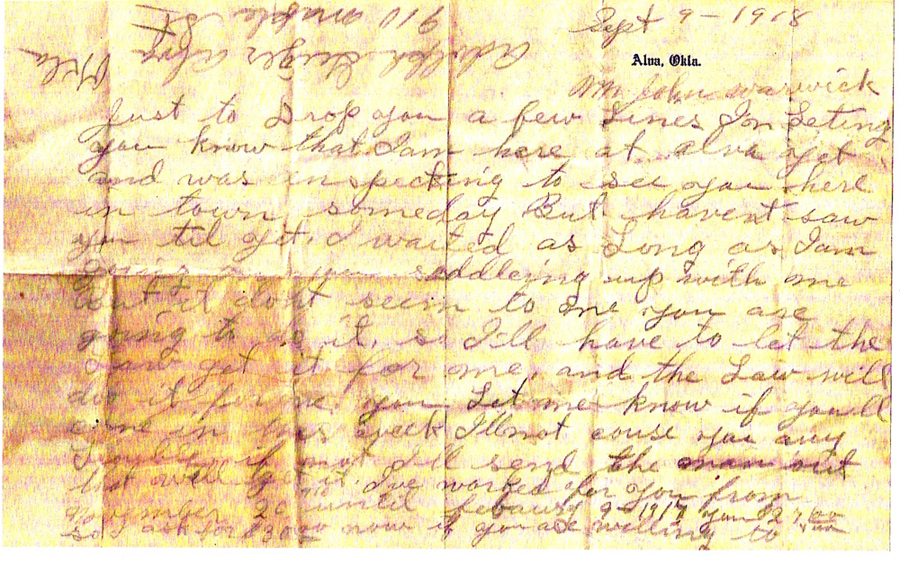 Sept 9-1918
Alva, Okla.
Mr John Warwick
Just to Drop you a few Lines In Leting
you know that I am here at alva yet
and was inspecting to see you here
in town someday But havent saw
you til yet. I waited as Long as I am
going you saddleing up with me
But it dont seem to me you are
going to do it, so I'll have to let the
Law get it for me, and the Law will
do it for me. you Let me know if you'll
come in this week I'll not couse you any
Trouble, if not I'll send the man out
that will get it. I've worked for you from
november 20 until febaury 9-1917
so I ask for $30 00 now if you are willing to
910 maple St
Adolph Geiger Alva
Okla